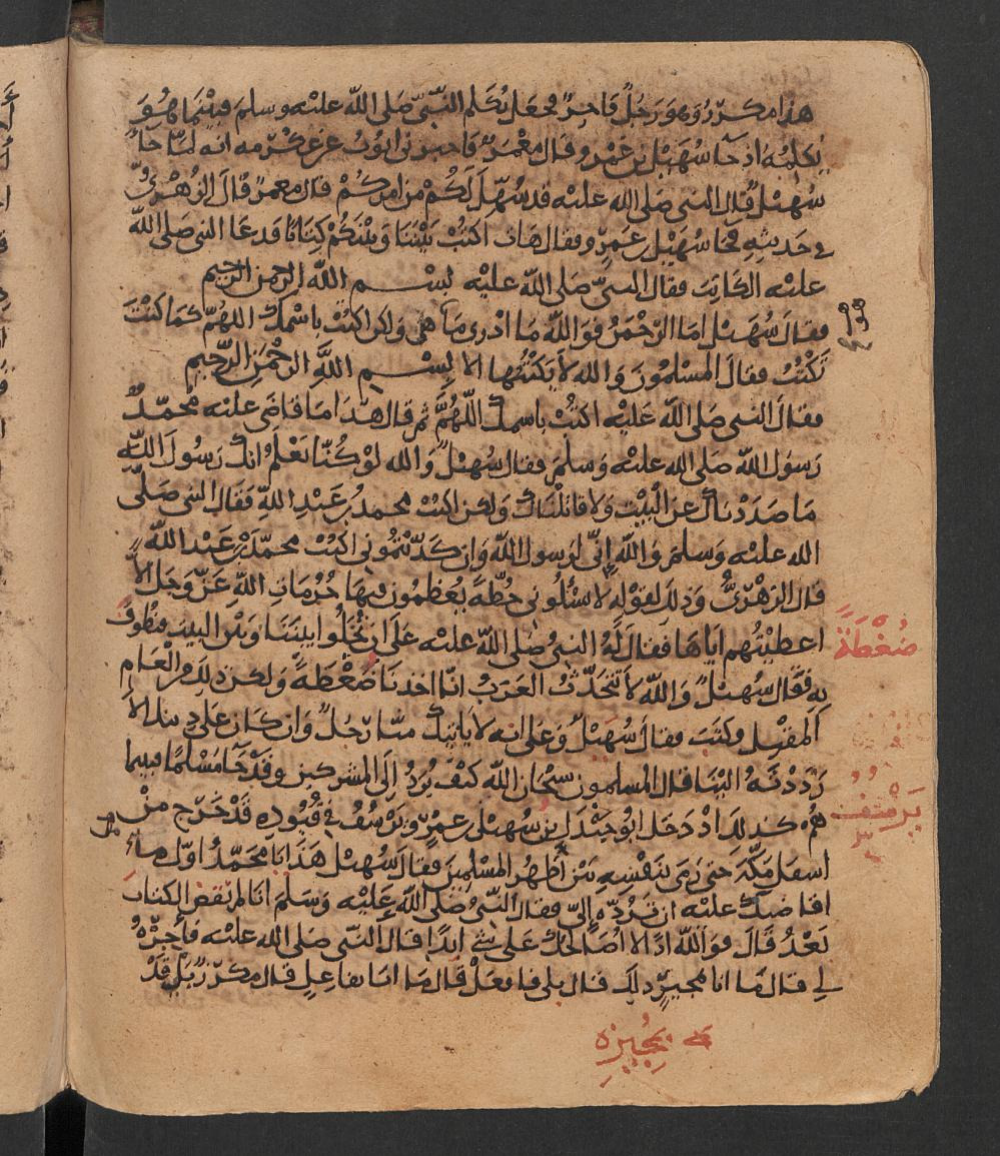 هذا مكرز وهو رجل فاجر فجعل يكلم النبي صلى الله عليه وسلم فبينما هو
يكلمه اذ جا سهيل بن عمرو قال معمر فاخبرني ايوب عن عكرمه انه لما جا
سهيل قال النبي صلى الله عليه قد سهل لكم من امركم قال معمر قال الزهري
في حديثه فجا سهيل بن عمرو فقال هات اكتب بيننا وبينكم كتابا فدعا النبي صلى الله
عليه الكاتب فقال النبي صلى الله عليه بسم الله الرحمن الرحيم
فقال سهيل اما الرحمن فوالله ما ادري ما هي ولكن اكتب باسمك اللهم كما كنت
تكتب فقال المسلمون والله لا يكتبها الا بسم الله الرحمن الرحيم
فقال النبي صلى الله عليه اكتب باسمك اللهم ثم قال هذا ما قاضى عليه محمد
رسول الله صلى الله عليه وسلم فقال سهيل والله لو كنا نعلم انك رسول الله
ما صددناك عن البيت ولا قاتلناك ولكن اكتب محمد بن عبد الله فقال النبي صلى
الله عليه وسلم والله إني لرسول الله وان كذبتموني اكتب محمد بن عبد الله
قال الزهري وذلك لقوله لا يسئلوني خطة يعظمون فيها حرمات الله عز وجل الا
اعطيتهم اياها فقال له النبي صلى الله عليه على ان تخلوا بيننا وبين البيت فنطوف
به فقال سهيل والله لا تتحدث العرب انا اخذنا ضغطة ولكن ذلك من العام
المقبل فكتب فقال سهيل وعلى انه لا ياتيك منا رجل وان كان على دينك الا
رددته الينا قال المسلمون سبحان الله كيف يرد الى المشركين وقد جا مسلما فبينما
هم كذلك اذ دخل ابو جندل بن سهيل بن عمرو يرسف في قيوده قد خرج من
اسفل مكة حتى رمى بنفسه بين أظهر المسلمين فقال سهيل هذا يا محمد اول ما
اقاضيك عليه ان ترده إلي فقال النبي صلى الله عليه وسلم انا لم نقض الكتاب
بعد قال فوالله اذا لا اصالحك على شي ابدا قال النبي صلى الله عليه فأجزه
لي قال ما انا بمجيز ذلك قال بلى فافعل قال ما انا بفاعل قال مكرز بل قد
ضغطة
يرسف
بمجيزه